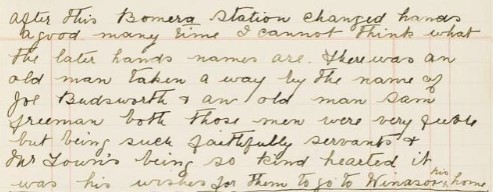 after this Bomera Station changed hands
a good many time I cannot think what
the later hands names are. There was an
old man taken a way by the name of
Joe Budsworth & an old man Sam
freeman both those men were very
but being such faithfully servants &
Mr Town's being so kind hearted it
was his wishes for them to go to Winasor his home